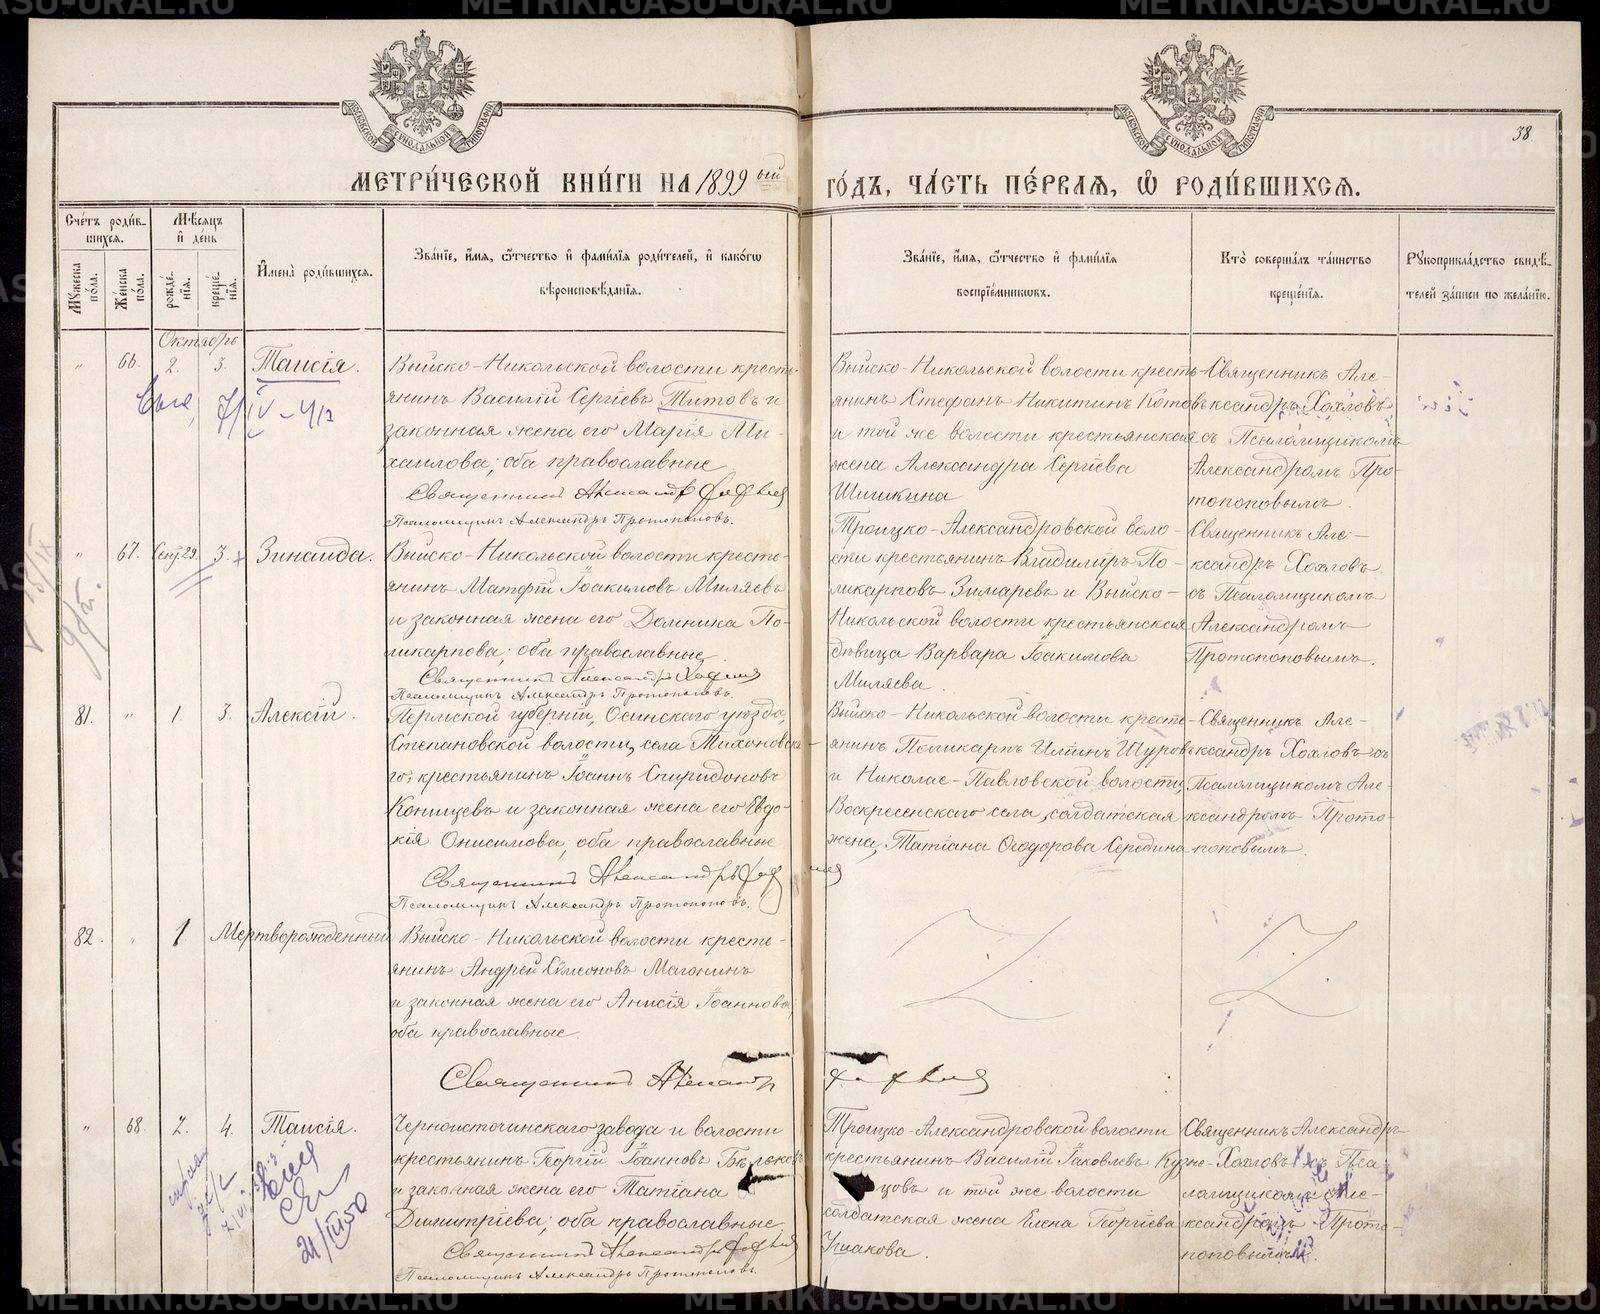 МЕТРИ́ЧЕСКОЙ КНИ́ГИ НА 1899 ый ГО́ДЪ, ЧА́СТЬ ПЕ́РВАЯ, Ѡ҆ РОДИ́ВШИХСЯ.
38.
Сче́тъ роди́в-
шихся.
Мꙋ́жеска по́ла.
Же́нска по́ла.
Мѣ́сяцъ и҆ де́нь
рожде́-
нїя.
креще́-
нїя.
И҆мена̀ роди́вшихся.
Зва́нїе, и҆́мя, ѻ҆́тчество и҆ фами́лїя роди́телей, и҆ како́гѡ
вѣроисповѣ́данїя.
Зва́нїе, и҆́мя, ѻ҆́тчество и҆ фами́лїя
воспрїе́мникѡвъ.
Кто̀ соверша́лъ та́инство
креще́нїя.
Рꙋкоприкла́дство свидѣ́-
телей за́писи по жела́нїю.
Октябрь
" 66. 2. 3. Таисія.
Выйско-Никольской волости кресть-
янинъ Василій Сергіевъ Титовъ и
законная жена его Марія Ми-
хаилова; оба православные
Священникъ Александръ Хохловъ
Псаломщикъ Александръ Протопоповъ.
Выйско-Никольской волости кресть-
янинъ Стефанъ Никитинъ Котовъ
и той же волости крестьянская
жена Александра Сергіева
Шишкина.
Священникъ Але-
ксандръ Хохловъ
съ Псаломщикомъ
Александромъ Про-
топоповымъ.
" 67. Сент. 29. 3. Зинаида.
Выйско-Никольской волости кресть-
янинъ Матѳій Іоакимовъ Миляевъ
и законная жена его Домника По-
ликарпова; оба православные.
Священникъ Александръ Хохловъ
Псаломщикъ Александръ Протопоповъ.
Троицко-Александровской воло-
сти крестьянинъ Владимиръ По-
ликарповъ Зимаревъ и Выйско-
Никольской волости крестьянская
дѣвица Варвара Іоакимова
Миляева.
Священникъ Але-
ксандръ Хохловъ
съ Псаломщикомъ
Александромъ
Протопоповымъ.
81. " 1. 3. Алексій.
Пермской губерніи, Осинскаго уѣзда,
Степановской волости, села Тихоновска-
го, крестьянинъ Іоаннъ Спиридоновъ
Конищевъ и законная жена его Евдо-
кія Онисимова, оба православные
Священникъ Александръ Хохловъ
Псаломщикъ Александръ Протопоповъ.
Выйско-Никольской волости кресть-
янинъ Поликарпъ Илiинъ Шуровъ
и Николае-Павловской волости,
Воскресенскаго села, солдатская
жена, Татіана Ѳеодорова Середина
Священникъ Але-
ксандръ Хохловъ съ
Псаломщикомъ Але-
ксандромъ Прото-
поповымъ.
82. " 1 Мертворожденный
Выйско-Никольской волости кресть-
янинъ Андрей Сѵмеоновъ Магонинъ
и законная жена его Анисія Іоаннова,
оба православные.
Священникъ Александръ Хохловъ
" 68. 2. 4. Таисія.
Черноисточинскаго завода и волости
крестьянинъ Георгій Іоанновъ Бѣльковъ
и законная жена его Татіана
Димитріева; оба православные.
Священникъ Александръ Хохловъ
Псаломщикъ Александръ Протопоповъ.
Троицко-Александровской волости
крестьянинъ Василій Іаковлевъ Кузне-
цовъ и той же волости
солдатская жена Елена Георгіева
Ушакова.
Священникъ Александръ
Хохловъ съ Пса-
ломщикомъ Але-
ксандромъ Прото-
поповымъ.
21/III 50
METRIKI.GASO-URAL.RU